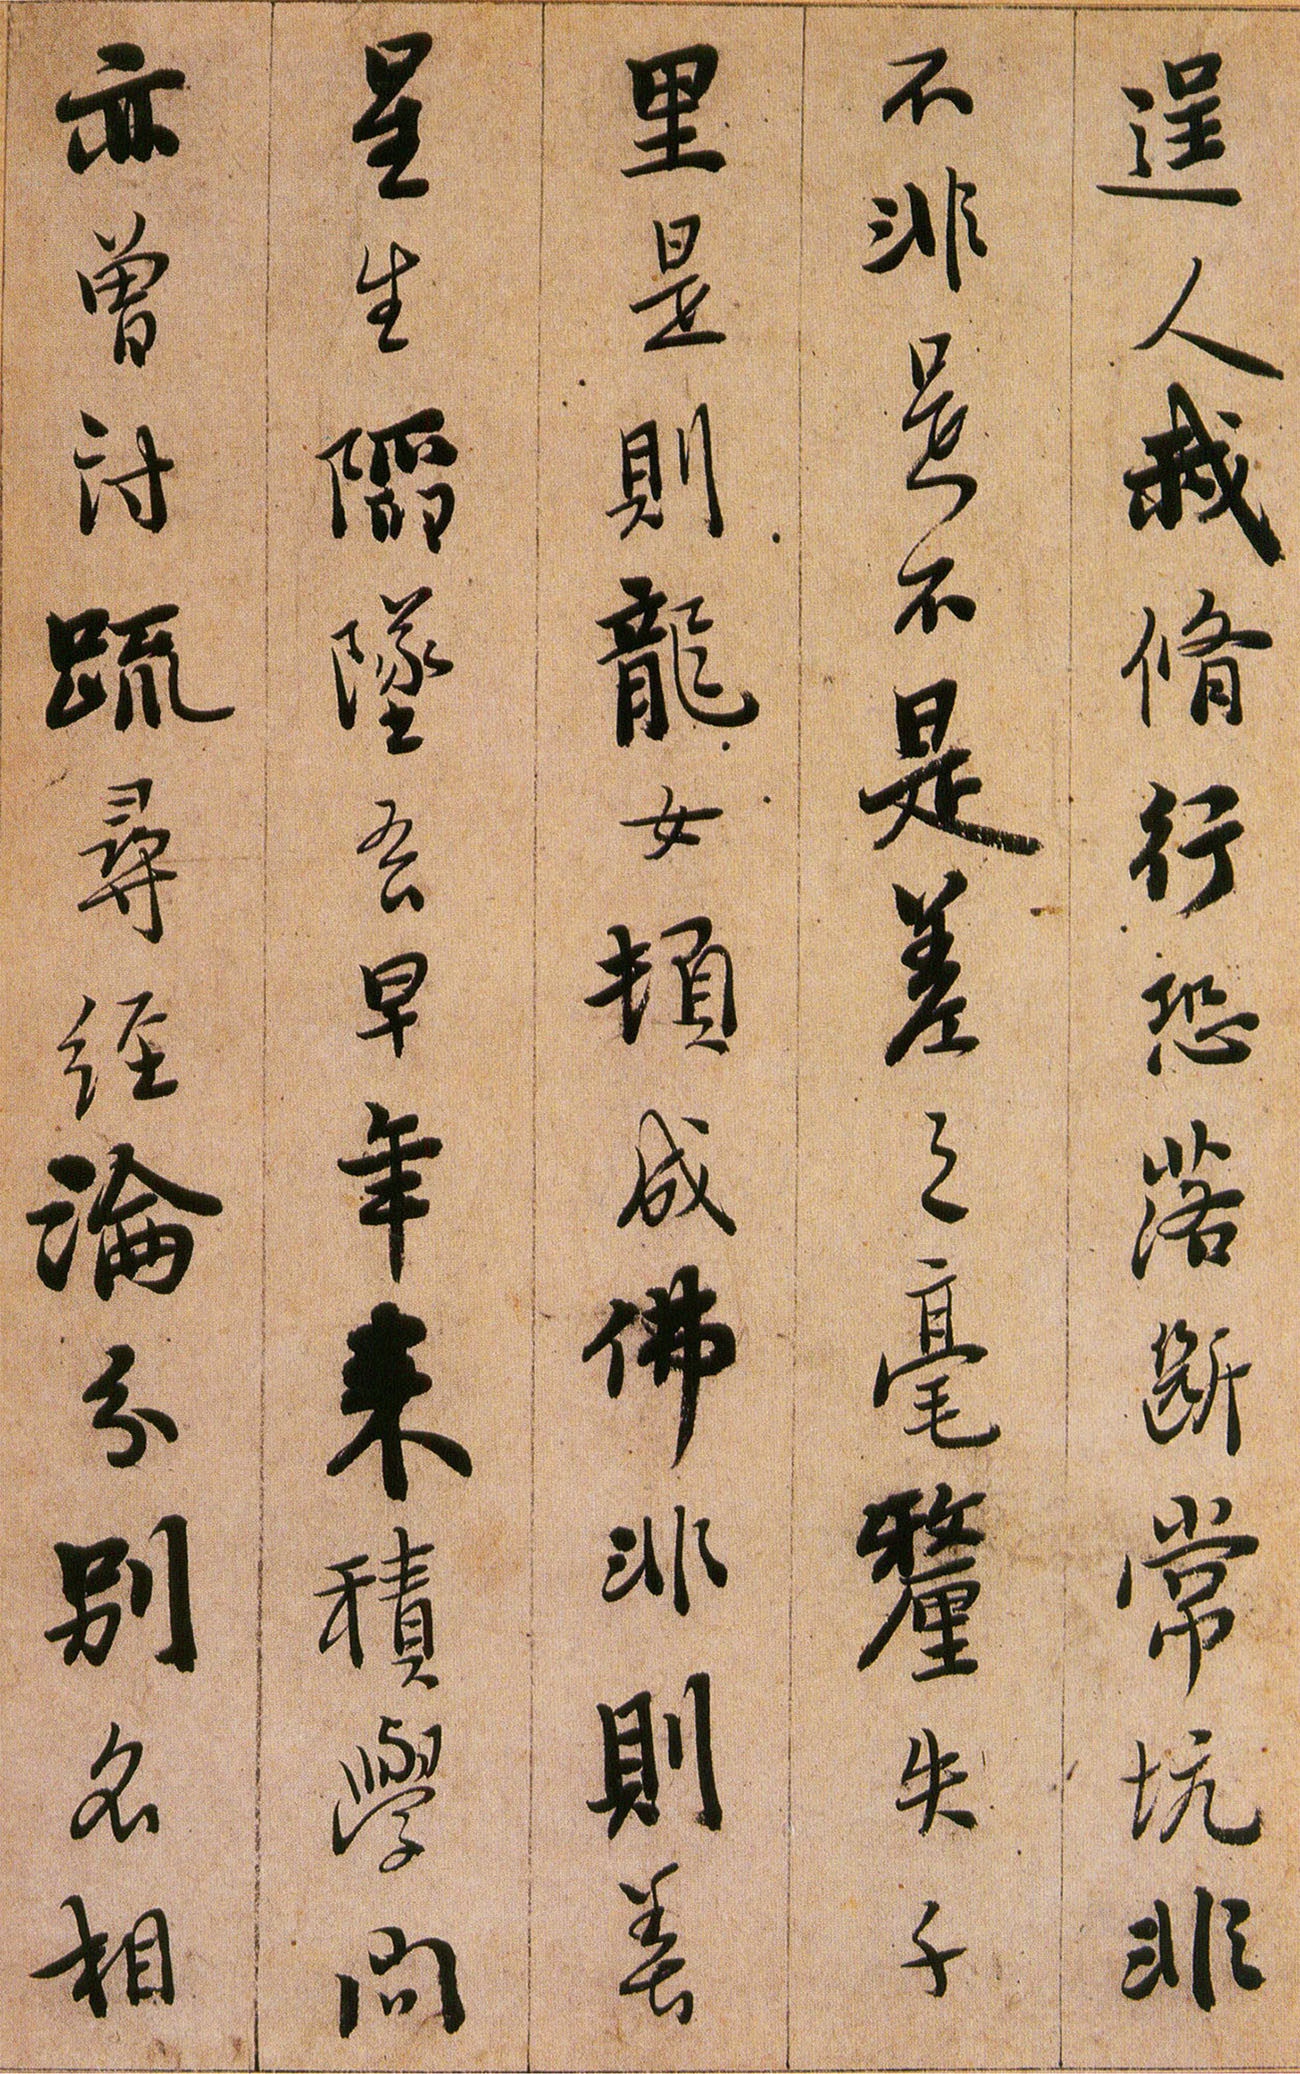 逞人我脩行恐落斷常坑非
不非是不是差之毫釐失千
里是則龍女頓成佛非則善
星生陷墜吾早年来積學問
亦曾討䟽尋經論分別名相